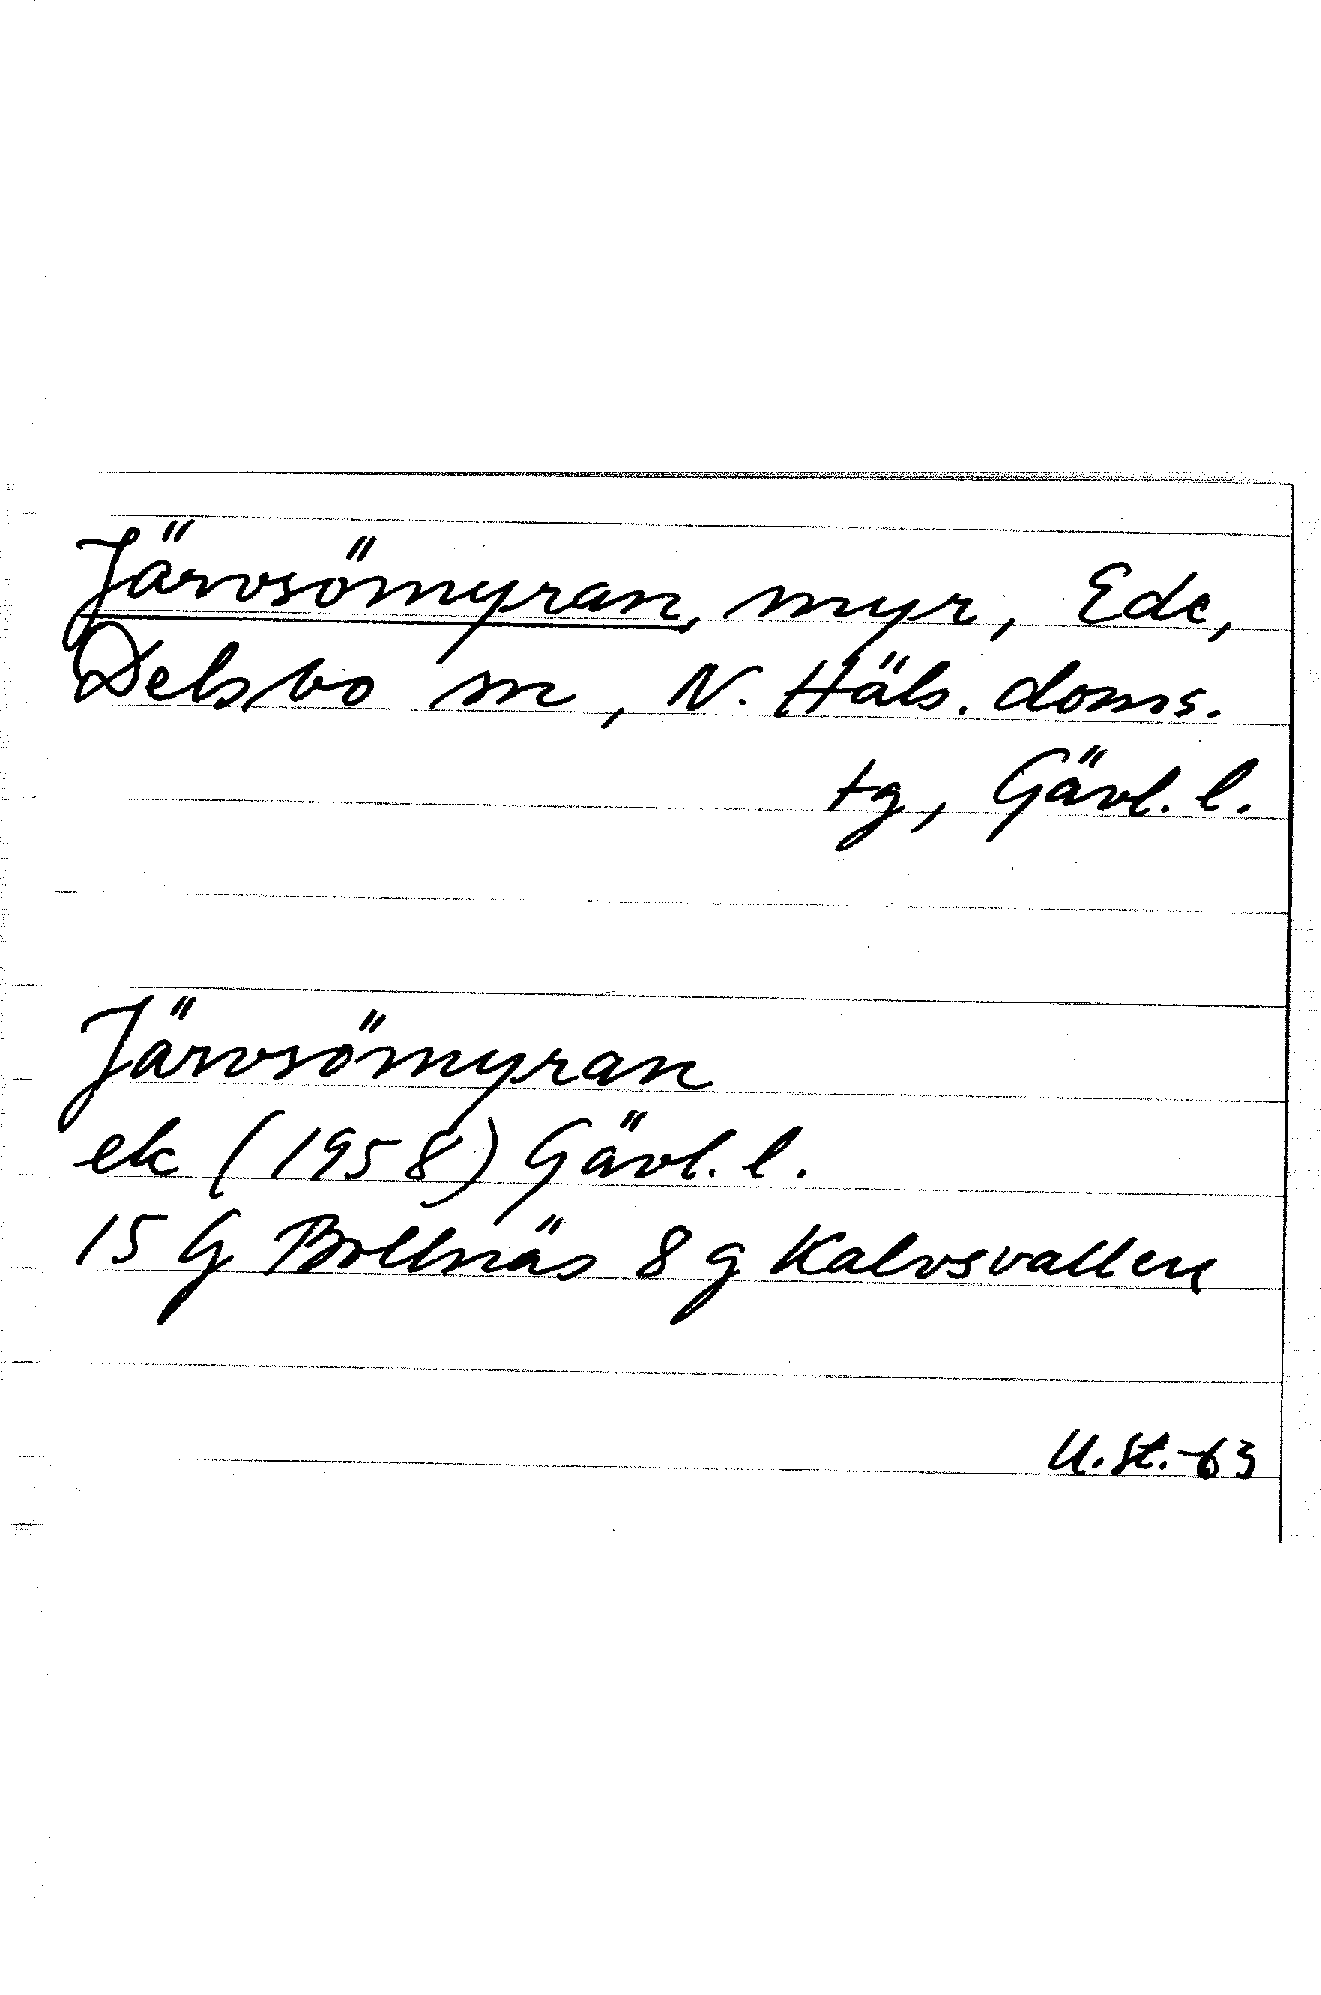 Järvsömyran, myr, Ede,
Delsbo sn, N. Häls. doms.
tg, Gävl. l.
Järvsömyran
ek (1958) Gävl. l.
15 G Bollnäs 8 g Kalvsvallen
U.St.-63